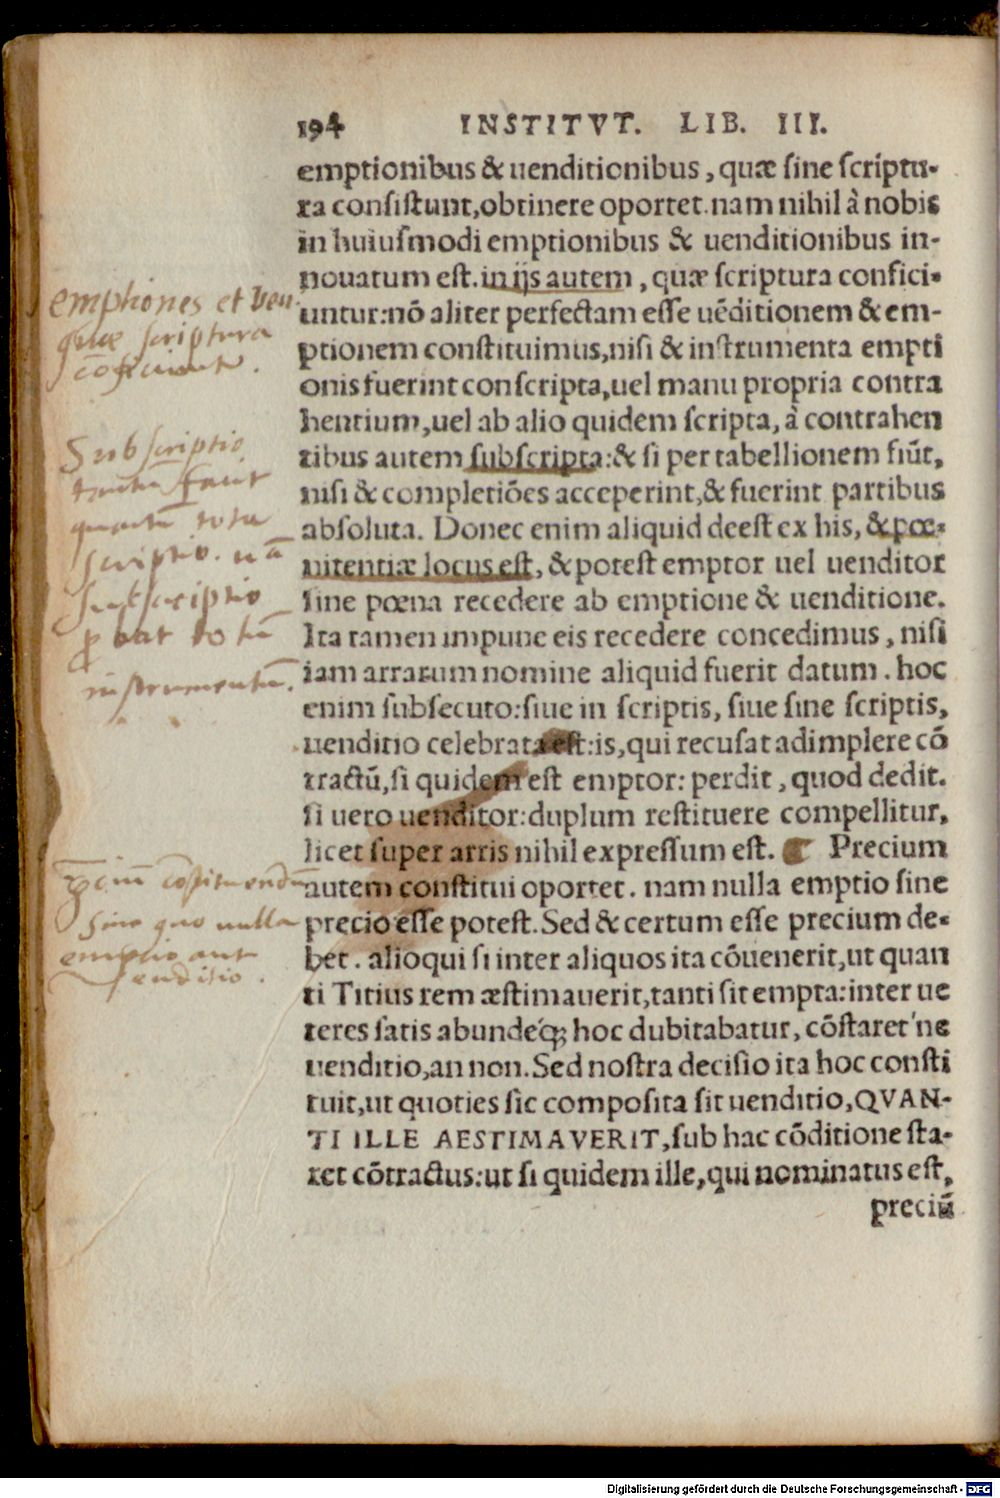 194 INSTITVT. LIB. III.
emptionibus & uenditionibus, quæ sine scriptu-
ra consistunt, obtinere oportet. nam nihil à nobis
in huiusmodi emptionibus & uenditionibus in-
nouatum est. in ijs autem, quæ scriptura confici-
untur: nō aliter perfectam esse uēditionem & em-
ptionem constituimus, nisi & instrumenta empti
onis fuerint conscripta, uel manu propria contra
hentium, uel ab alio quidem scripta, à contrahen
tibus autem subscripta: & si per tabellionem fiūt,
nisi & completiōes acceperint, & fuerint partibus
absoluta. Donec enim aliquid deest ex his, & pœ-
nitentiæ locus est, & potest emptor uel uenditor
sine pœna recedere ab emptione & uenditione.
Ita tamen impune eis recedere concedimus, nisi
iam arrarum nomine aliquid fuerit datum. hoc
enim subsecuto: siue in scriptis, siue sine scriptis,
uenditio celebrata est: is, qui recusat adimplere cō
tractū, si quidem est emptor: perdit, quod dedit.
si uero uenditor: duplum restituere compellitur,
licet super arris nihil expressum est. Precium
autem constitui oportet. nam nulla emptio sine
precio esse potest. Sed & certum esse precium de-
bet. alioqui si inter aliquos ita cōuenerit, ut quan
ti Titius rem æstimauerit, tanti sit empta: inter ue
teres satis abundeq́; hoc dubitabatur, cōstaret'ne
uenditio, an non. Sed nostra decisio ita hoc consti
tuit, ut quoties sic composita sit uenditio, QVAN-
TI ILLE AESTIMAVERIT, sub hac cōditione sta-
ret cōtractus: ut si quidem ille, qui nominatus est,
preciū
emptiones et Ven.
quæ scriptura
cōficiunt.
Subscriptio
tantū facit
quantū tota
scriptio. nā
subscriptio
probat totū
instrumentū.
constituendū
sine quo nulla
emptio aut
venditio.
Digitalisierung gefördert durch die Deutsche Forschungsgemeinschaft - DFG